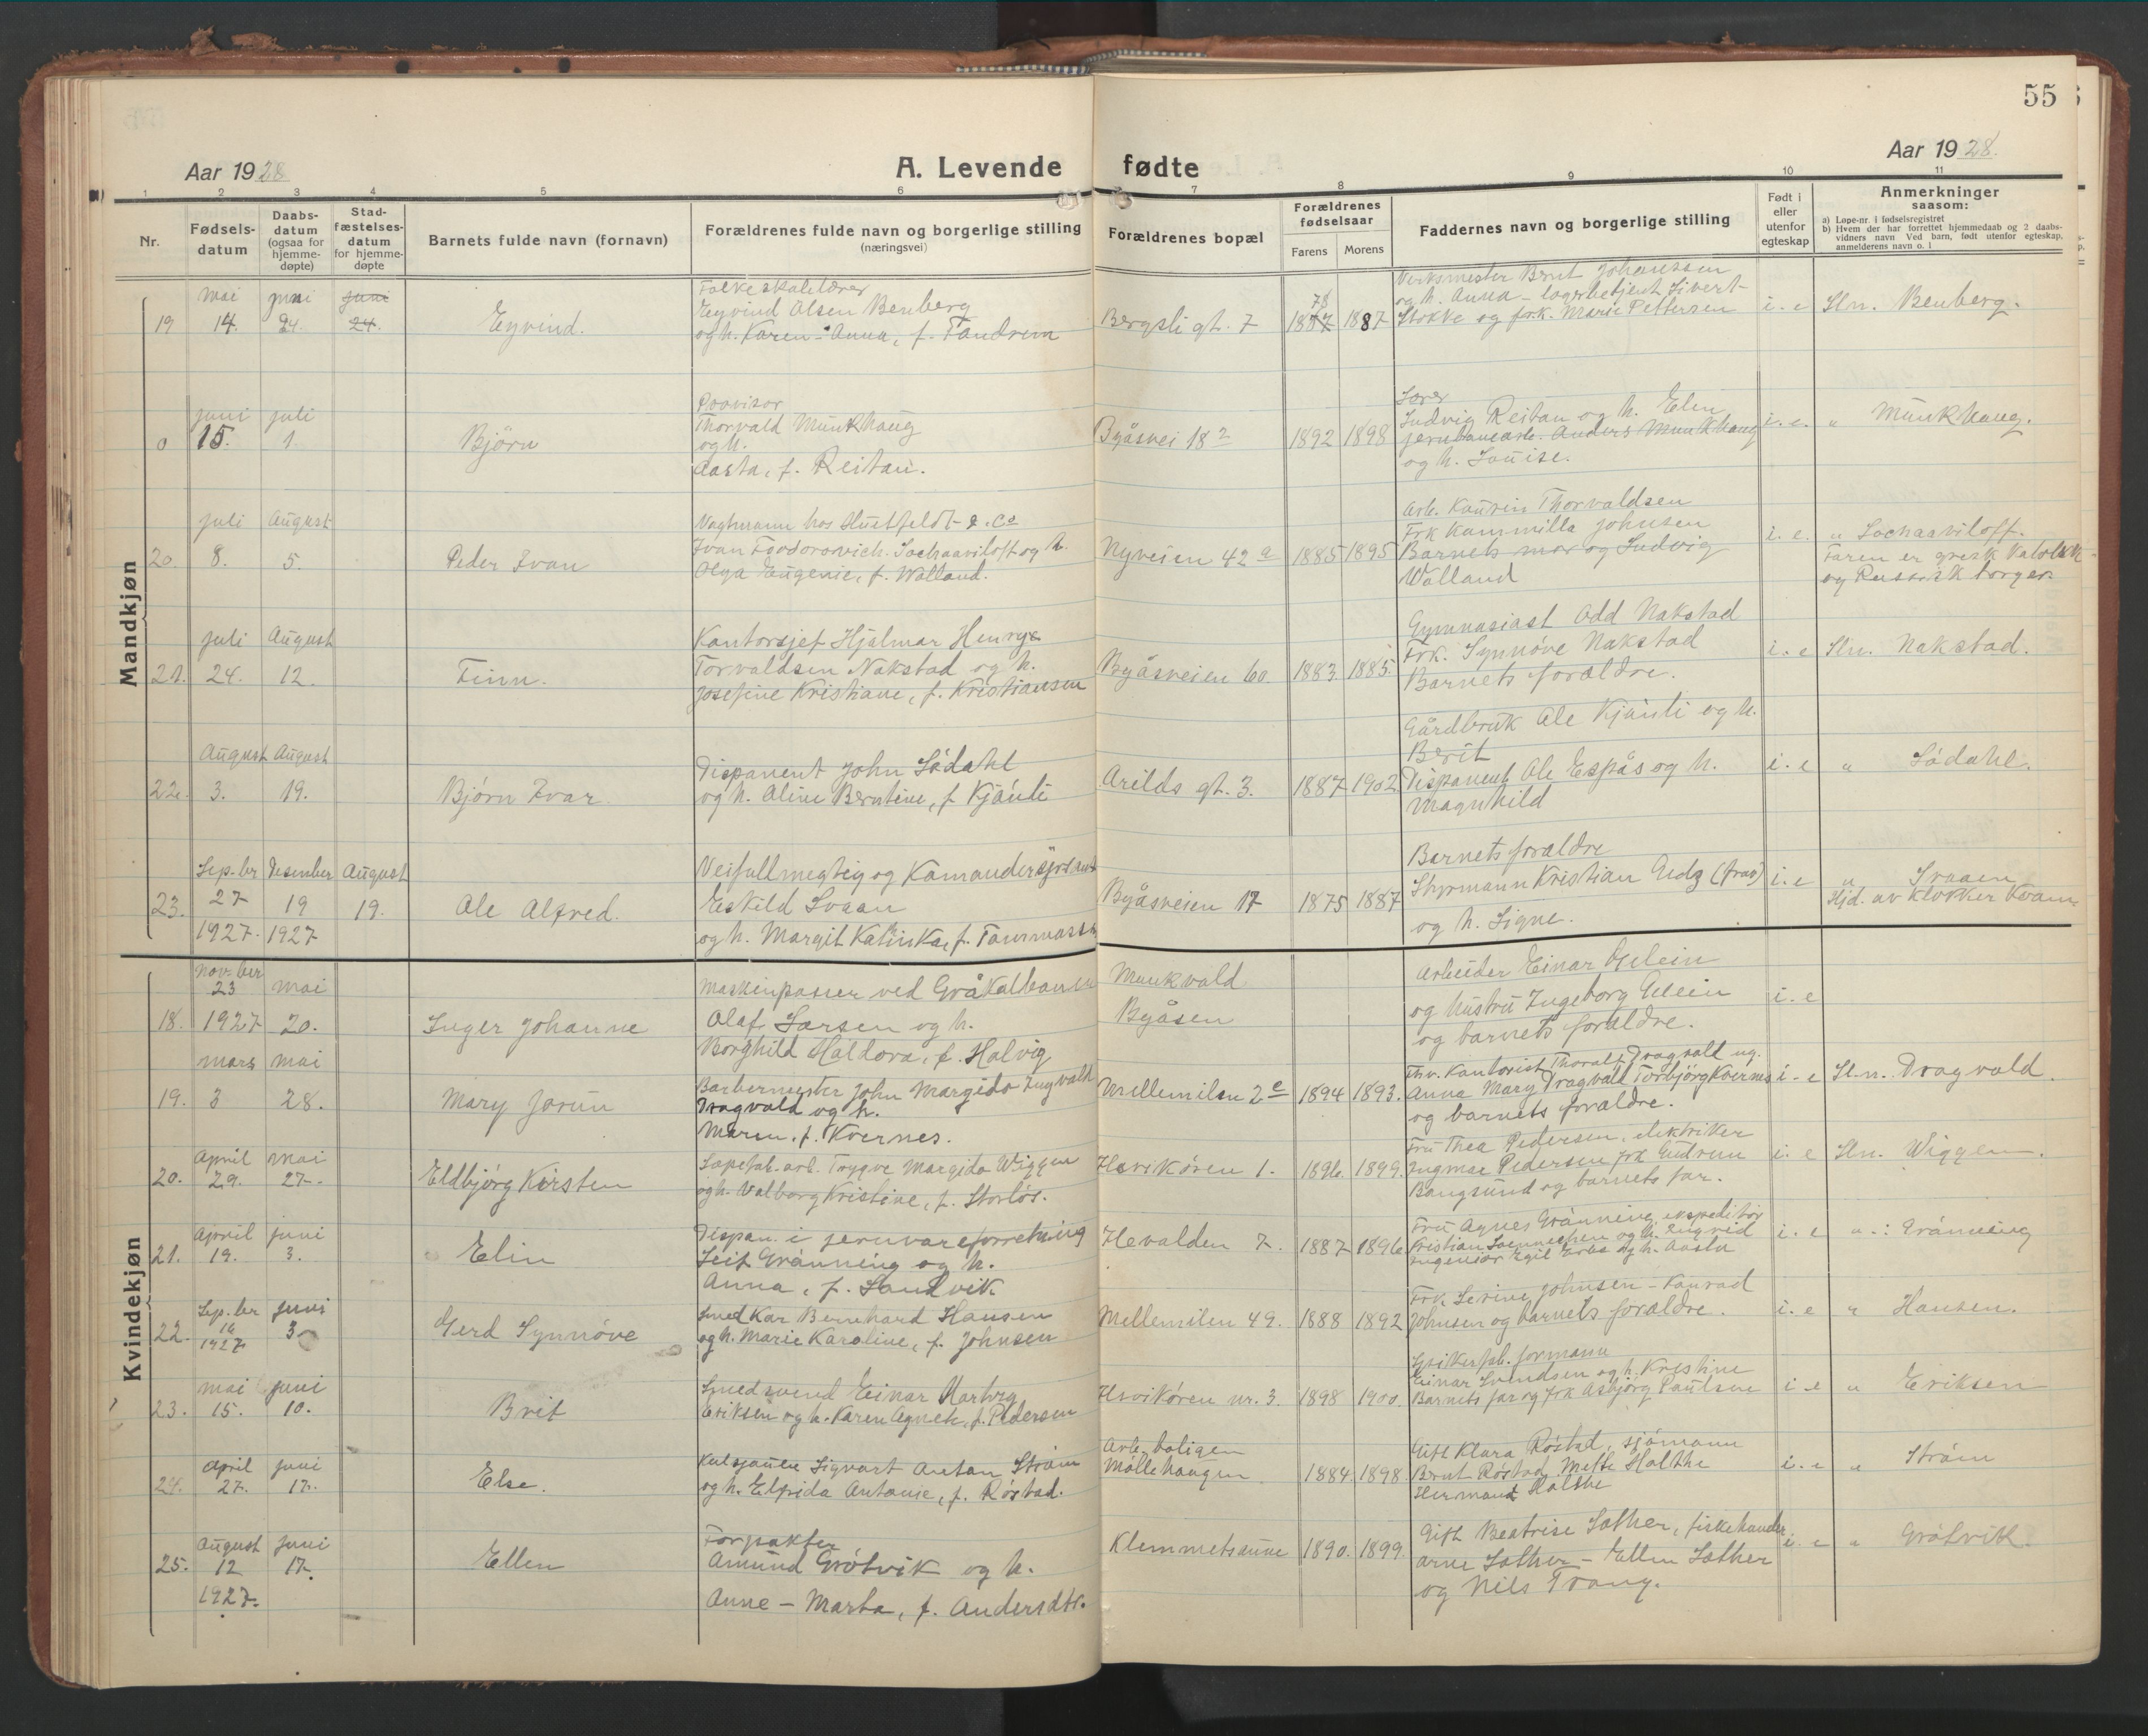 55
Aar 1928
A. Levende fødte
Aar 1928.
1 2 3 4 5 6 7 8 9 10 11
Nr.
Fødsels-datum
Daabs-datum (ogsaa for hjemme-døpte)
Stad-fæstelses-datum for hjemme-døpte
Barnets fulde navn (fornavn)
Forældrenes fulde navn og borgerlige stilling (næringsvei)
Forældrenes bopæl
Forældrenes fødselsaar
Farens Morens
Faddernes navn og borgerlige stilling
Født i eller utenfor egteskap
Anmerkninger saasom:
a) Løpe-nr. i fødselsregistret
b) Hvem der har forrettet hjemmedaab og 2 daabs-
vidners navn Ved barn, født utenfor egteskap,
anmelderens navn o. l
Mandkjøn
19 mai 14. juni 24. juni 24. Eyvind.
Folkeskolelærer
Eyvind Olsen Benberg
og h. Karen-Anna, f. Tandrem
Bergsli gt. 7 1878 1887
Verksmester Bernt Johanssen
og h. Anna - lagerbetjent Sivert
Stokke og frk. Marie Pettersen
i. e Sln. Benberg.
0 juni 15. juli 1. Bjørn
Provisor
Thorvald Munkhaug
og h.
Aasta, f. Reitan.
Byåsvei 18 1892 1898
Lærer
Ludvig Reitan og h. Elin
jernbanearb. Anders Munkhaug
og h. Louise.
i. e. " Munkhaug.
20. juli 8. August 5. Peder Ivan
Vagtmann hos Huitfeldt & Co
Ivan Feodorovich. og h.
Olga Eugenie, f. Walland.
Nyveien 42 a 1885 1895
Arb. Kaurin Thorvaldsen
Frk Kammilla Johnsen
Barnets mor og Ludvig
Walland
i. e. "
Faren er gresk katolikk
og Russisk borger.
21. juli 24. August 12. Finn.
Kontorsjef Hjalmar Henry
Torvaldsen Nakstad og h.
Josefine Kristiane, f. Kristiansen
Byåsveien 60 1883 1885.
Gymnasiast Odd Nakstad
Frk. Synnøve Nakstad
Barnets forældre.
i. e Sln. Nakstad.
22. August 3. August 19. Bjørn Ivar
Disponent John Södahl
og h. Oline Berntine, f. Kjønli
Arilds gt. 3. 1887 1902
Gårdbruk Ole Kjønli og h.
Berit
Disponent Ole Espås og h.
Magnhild
i. e " Södahl.
23. Sep.ber 27 1927. Desember 19 1927 August 19. Ole Alfred.
Veifullmegtig og
Eskild Svaan
og h. Margit Katinka, f.
Byåsveien 17 1875 1887
Barnets forældre
Styrmann Kristian (frav)
og h. Signe.
i. e " Svaan
Hjd. av klokker Kvam
Kvindekjøn
18. Nov.ber 23 1927 mai 20. Inger Johanne
Maskinpasser ved Gråkalbanen
Olaf Larsen og h.
Borghild Haldora, f. Halvig
Munkvold
Byåsen
Arbeider Einar
og hustru Ingeborg
og barnets forældre.
i. e
19. mars 3 mai 28. Mary Jorun
Barbermester John Margido Ingvald
Dragvold og h.
Maren, f. Kvernes.
Mellemilen 2 c 1894 1893.
Kontorist Thoralf Dragvold ug.
Anna Mary Dragvold Torbjörg Kvernes
og barnets forældre.
i. e Sln. Dragvold
20. April 29. mai 27. Eldbjörg Kirsten
Såpefab.arb. Trygve Margido Wiggen
og h. Valborg Kristine, f. Storløs.
Havikøren 1. 1896. 1899.
Fru Thea Pedersen, elektriker
Ingmar Pedersen frk Gudrun
Bangsund og barnets far.
i. e Sln. Wiggen.
21. April 19. juni 3. Elin
Dispon. i jernvareforretning
Leif Grånning og h.
Anna, f. Sandvik
Hevolden 7. 1887 1896
Fru Agnes Grånning, ekspeditør
Kristian og h. Ingrid
Ingeniør Egil og h. Aasta
i. e " Grånning
22. Sep.ber 1927 juni 3. Gerd Synnöve
Smed Kar Bernhard Hansen
og h. Marie Karoline, f. Johnsen
Mellemilen 49. 1888 1892
Frk. Serine Johnsen - Konrad
Johnsen og barnets forældre.
i. e " Hansen.
23. mai 15. juni 10. Brit
Smedsvend Einar
Eriksen og h. Karen Agnete, f. Pedersen
Havikøren nr. 3. 1898 1900.
Spikerfab. formann
Einar Svendsen og h. Kristine
Barnets far og frk Asbjörg Paulsen
i. e " Eriksen
24. April 27. juni 17. Else.
Kulsjauer Sigvart Anton Ström
og h. Elfrida Antonie, f. Röstad.
Arb. boligen
Möllehaugen 1884. 1898.
Gift Klara Röstad, sjömann
Bernt Röstad, Mette Holthe
Hermand Holthe
i. e " Ström
25. August 12 1927. juni 17. Ellen
Forpakter
Amund Grötvik og h.
Anne-Marta, f. Andersdtr.
Klemmetsaune 1890. 1899.
Gift Beatrise Sæther, fiskehandler
Arne Sæther - Ellen Sæther
og Nils Trang.
i. e " Grötvik.